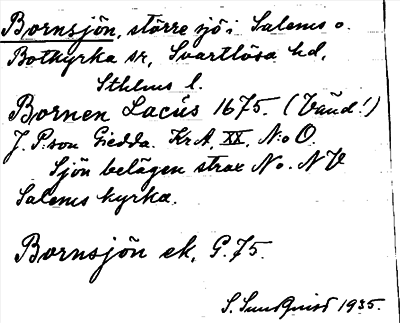 Bornsjön, större sjö i Salems o.
Botkyrka sr, Svartlösa hd,
Sthlms l.
Bornen Lacus 1675. (Vänd!)
J. P:son Giedda. KrA, XX, N:o O.
Sjön belägen strax N o. NV
Salems kyrka.
Bornsjön ek, G. 75.
S. Sundquist 1935.